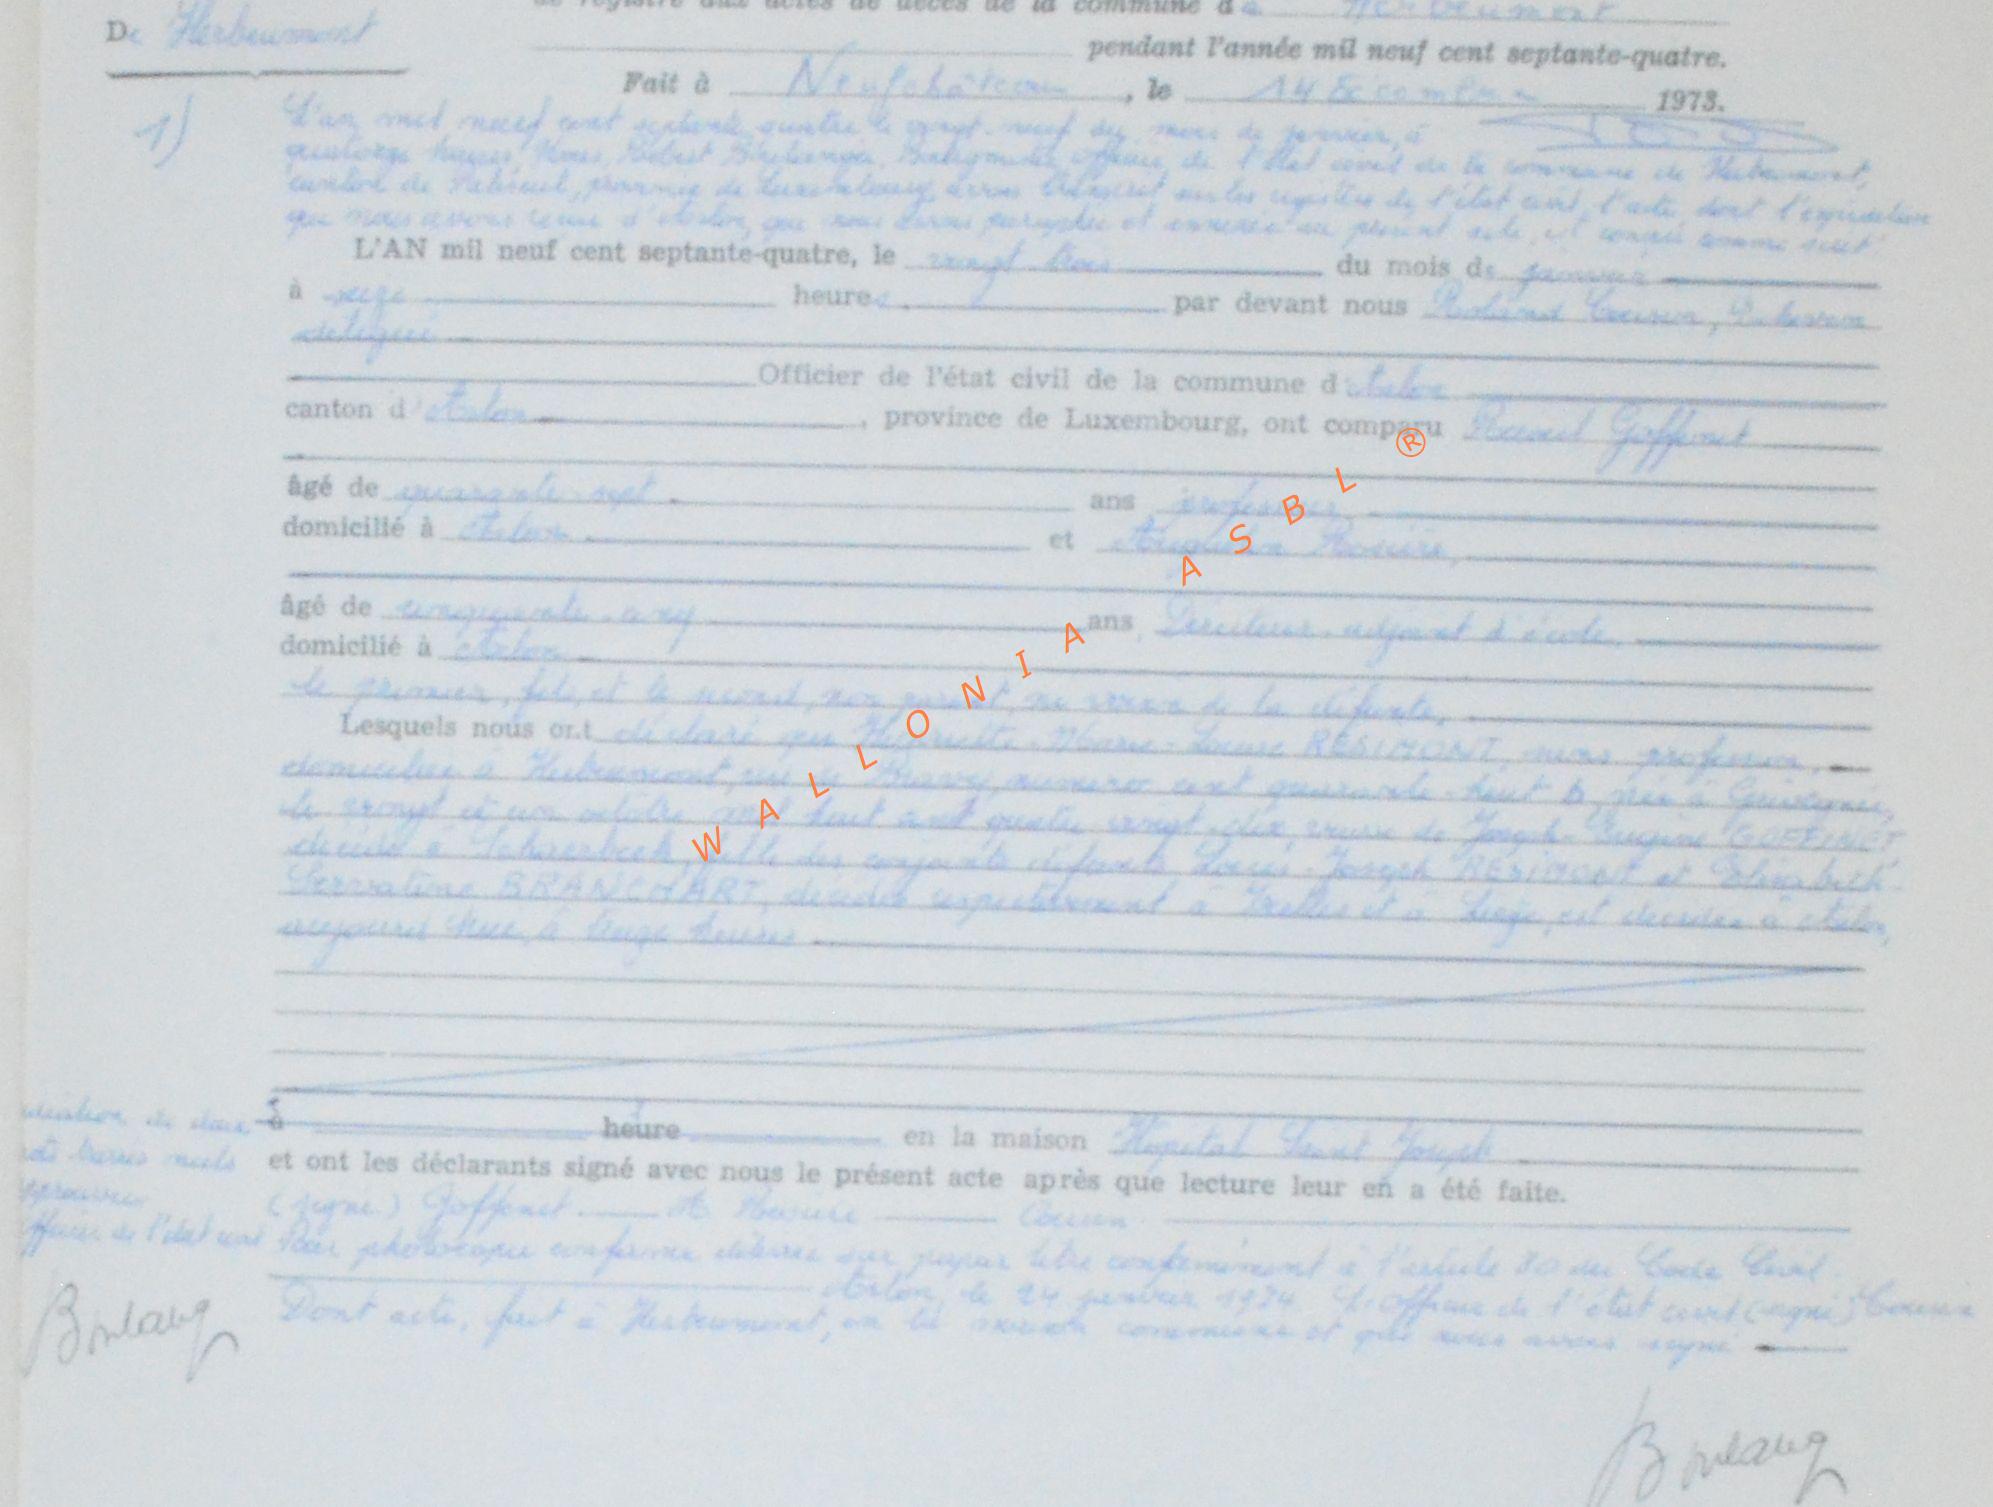 de registre aux actes de décès de la commune de Herbeumont
De Herbeumont
pendant l'année mil neuf cent septante-quatre.
Fait à Neufchâteau, le 14 décembre 1973.
1) L'an mil neuf cent septante quatre le vingt-neuf du mois de janvier, à
quatorze heures, Nous, Robert Bourgmestre, officier de l'état civil de la commune de Herbeumont,
canton de Paliseul, province de Luxembourg, avons transcrit sur les registres de l'état civil, l'acte dont l'expédition
que nous avons reçue d'Arlon, que nous avons paraphée et annexée au présent acte, et conçu comme suit
L'AN mil neuf cent septante-quatre, le vingt trois du mois de janvier
à seize heures par devant nous Roland Cousin, Echevin
délégué
Officier de l'état civil de la commune d'Arlon
canton d'Arlon, province de Luxembourg, ont comparu Goffinet
âgé de quarante-sept ans professeur
domicilié à Arlon et
âgé de cinquante-cinq ans, Directeur-adjoint d'école,
domicilié à Arlon
le premier, fils, et le second, non parent, ni voisin de la défunte,
Lesquels nous ont déclaré que Henriette-Marie-Louise RESIMONT, sans profession,
domiciliée à Herbeumont, rue numéro cent quarante-huit b, née à Grivegnée,
le vingt et un octobre mil huit cent quatre vingt-dix, veuve de Joseph-Eugène GOFFINET,
décédé à Schaerbeek, fille des conjoints défunts Louis-Joseph RESIMONT et Elisabeth-
Servatine BRANCHART, décédés respectivement à Ixelles et à Liège, est décédée à Arlon,
aujourd'hui, à treize heures
à heure en la maison Hôpital Saint Joseph
et ont les déclarants signé avec nous le présent acte après que lecture leur en a été faite.
(signé) Goffinet A. Cousin
Pour photocopie conforme délivrée sur papier libre conformément à l'article 80 du Code Civil.
Arlon, le 24 janvier 1974. L'officier de l'état civil (signé) Cousin
Dont acte, fait à Herbeumont, en la maison communale et que nous avons signé
de deux
mots barrés nuls
approuvée
officier de l'état civil
Boulang
Boulang
WALLONIA ASBL ®